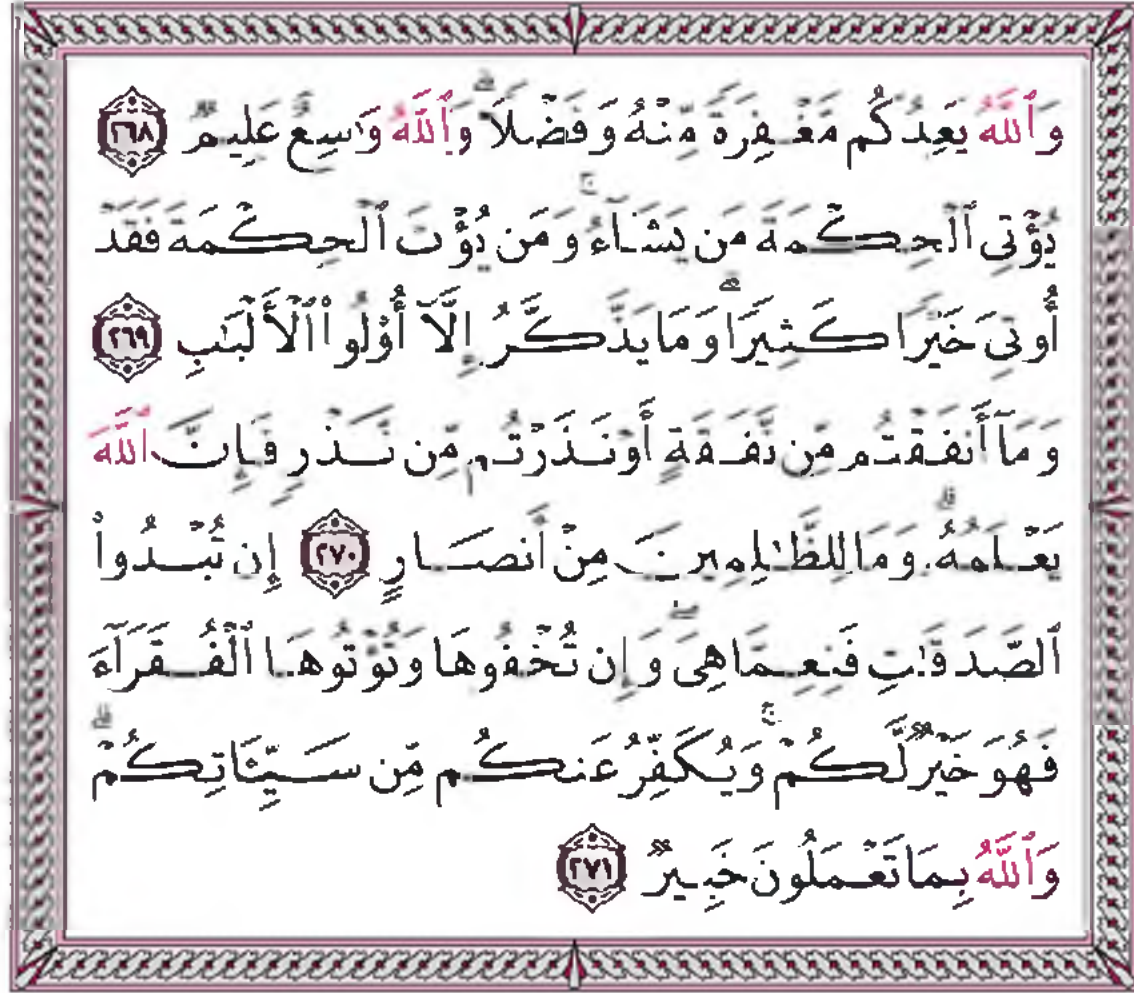 وَٱللَّهُ يَعِدُكُم مَّغْفِرَةً مِّنْهُ وَفَضْلًا ۗ وَٱللَّهُ وَٰسِعٌ عَلِيمٌ ٢٦٨
يُؤْتِى ٱلْحِكْمَةَ مَن يَشَآءُ ۚ وَمَن يُؤْتَ ٱلْحِكْمَةَ فَقَدْ
أُوتِىَ خَيْرًا كَثِيرًا ۗ وَمَا يَذَّكَّرُ إِلَّآ أُو۟لُوا۟ ٱلْأَلْبَٰبِ ٢٦٩
وَمَآ أَنفَقْتُم مِّن نَّفَقَةٍ أَوْ نَذَرْتُم مِّن نَّذْرٍ فَإِنَّ ٱللَّهَ
يَعْلَمُهُۥ ۗ وَمَا لِلظَّٰلِمِينَ مِنْ أَنصَارٍ ٢٧٠ إِن تُبْدُوا۟
ٱلصَّدَقَٰتِ فَنِعِمَّا هِىَ ۖ وَإِن تُخْفُوهَا وَتُؤْتُوهَا ٱلْفُقَرَآءَ
فَهُوَ خَيْرٌ لَّكُمْ ۚ وَيُكَفِّرُ عَنكُم مِّن سَيِّـَٔاتِكُمْ ۗ
وَٱللَّهُ بِمَا تَعْمَلُونَ خَبِيرٌ ٢٧١